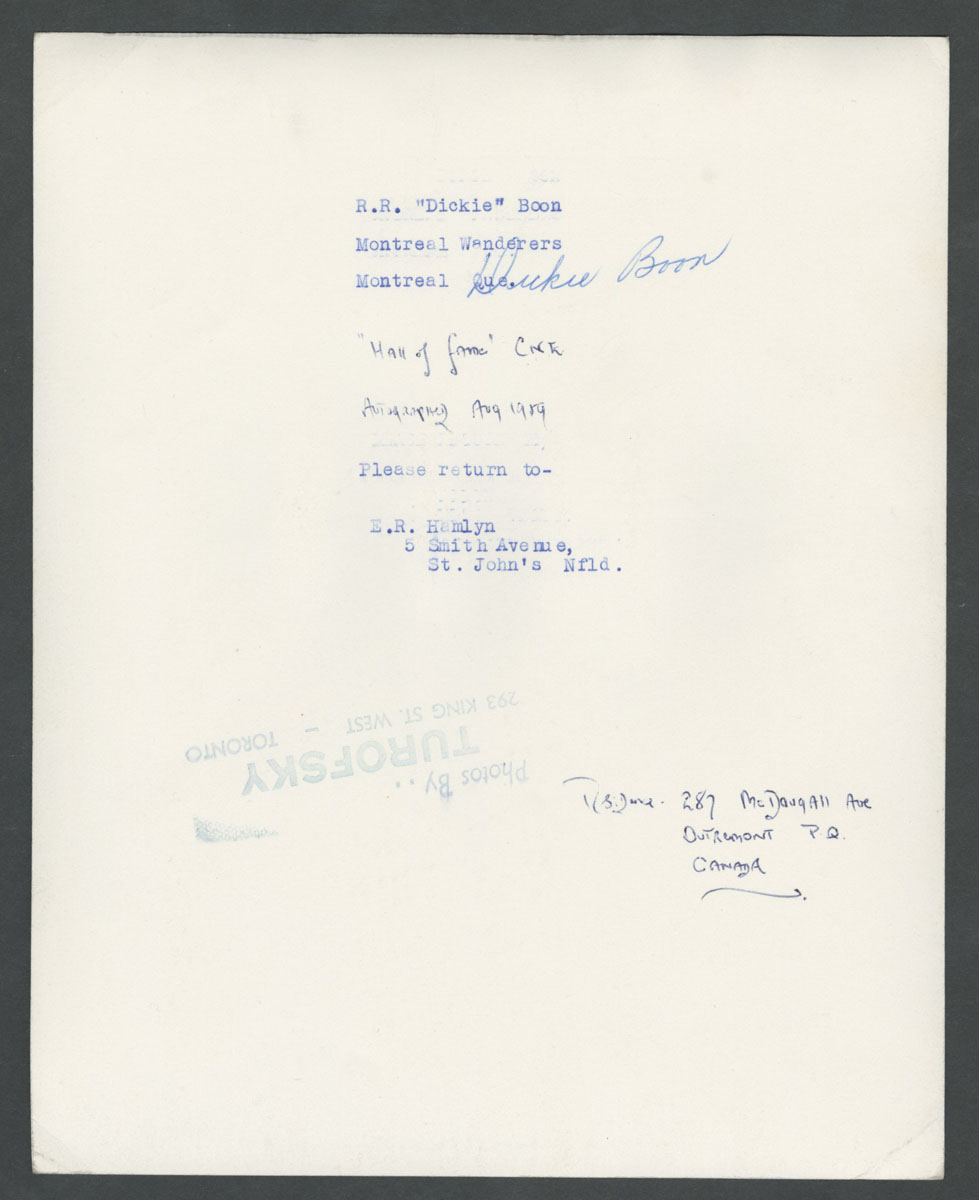 R.R. "Dickie" Boon
Montreal Wanderers
Montreal Que.
Dickie Boon
"Hall of fame" CNE
Autographed Aug
Please return to-
E.R. Hamlyn
5 Smith Avenue,
St. John's Nfld.
Photos By..
TUROFSKY
293 KING ST. WEST - TORONTO
287 McDougAll Ave
Outremont P.Q.
CANADA